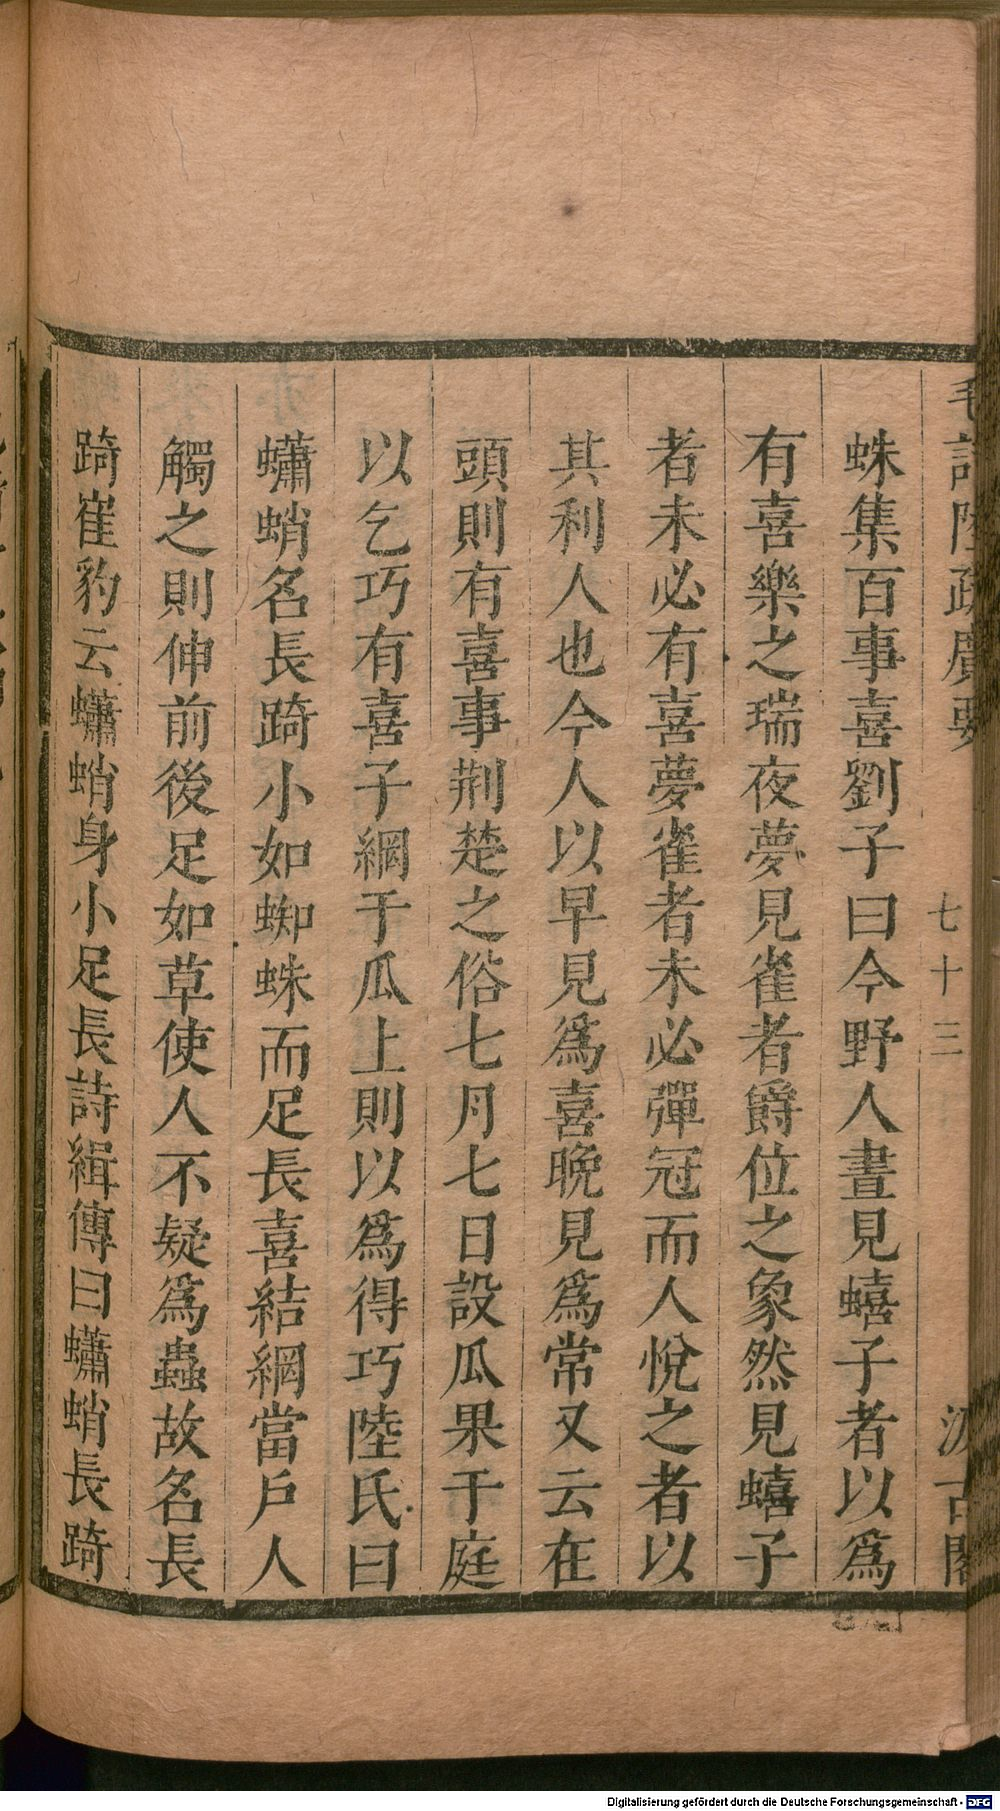 毛詩陸疏廣要 七十三 汲古閣
蛛集百事喜劉子曰今野人晝見蟢子者以爲
有喜樂之瑞夜夢見雀者爵位之象然見蟢子
者未必有喜夢雀者未必彈冠而人悅之者以
其利人也今人以早見爲喜晚見爲常又云在
頭則有喜事荆楚之俗七月七日設瓜果于庭
以乞巧有喜子網于瓜上則以爲得巧陸氏曰
蠨蛸名長踦小如蜘蛛而足長喜結網當戶人
觸之則伸前後足如草使人不疑爲蟲故名長
踦崔豹云蠨蛸身小足長詩緝傳曰蠨蛸長踦
Digitalisierung gefördert durch die Deutsche Forschungsgemeinschaft - DFG